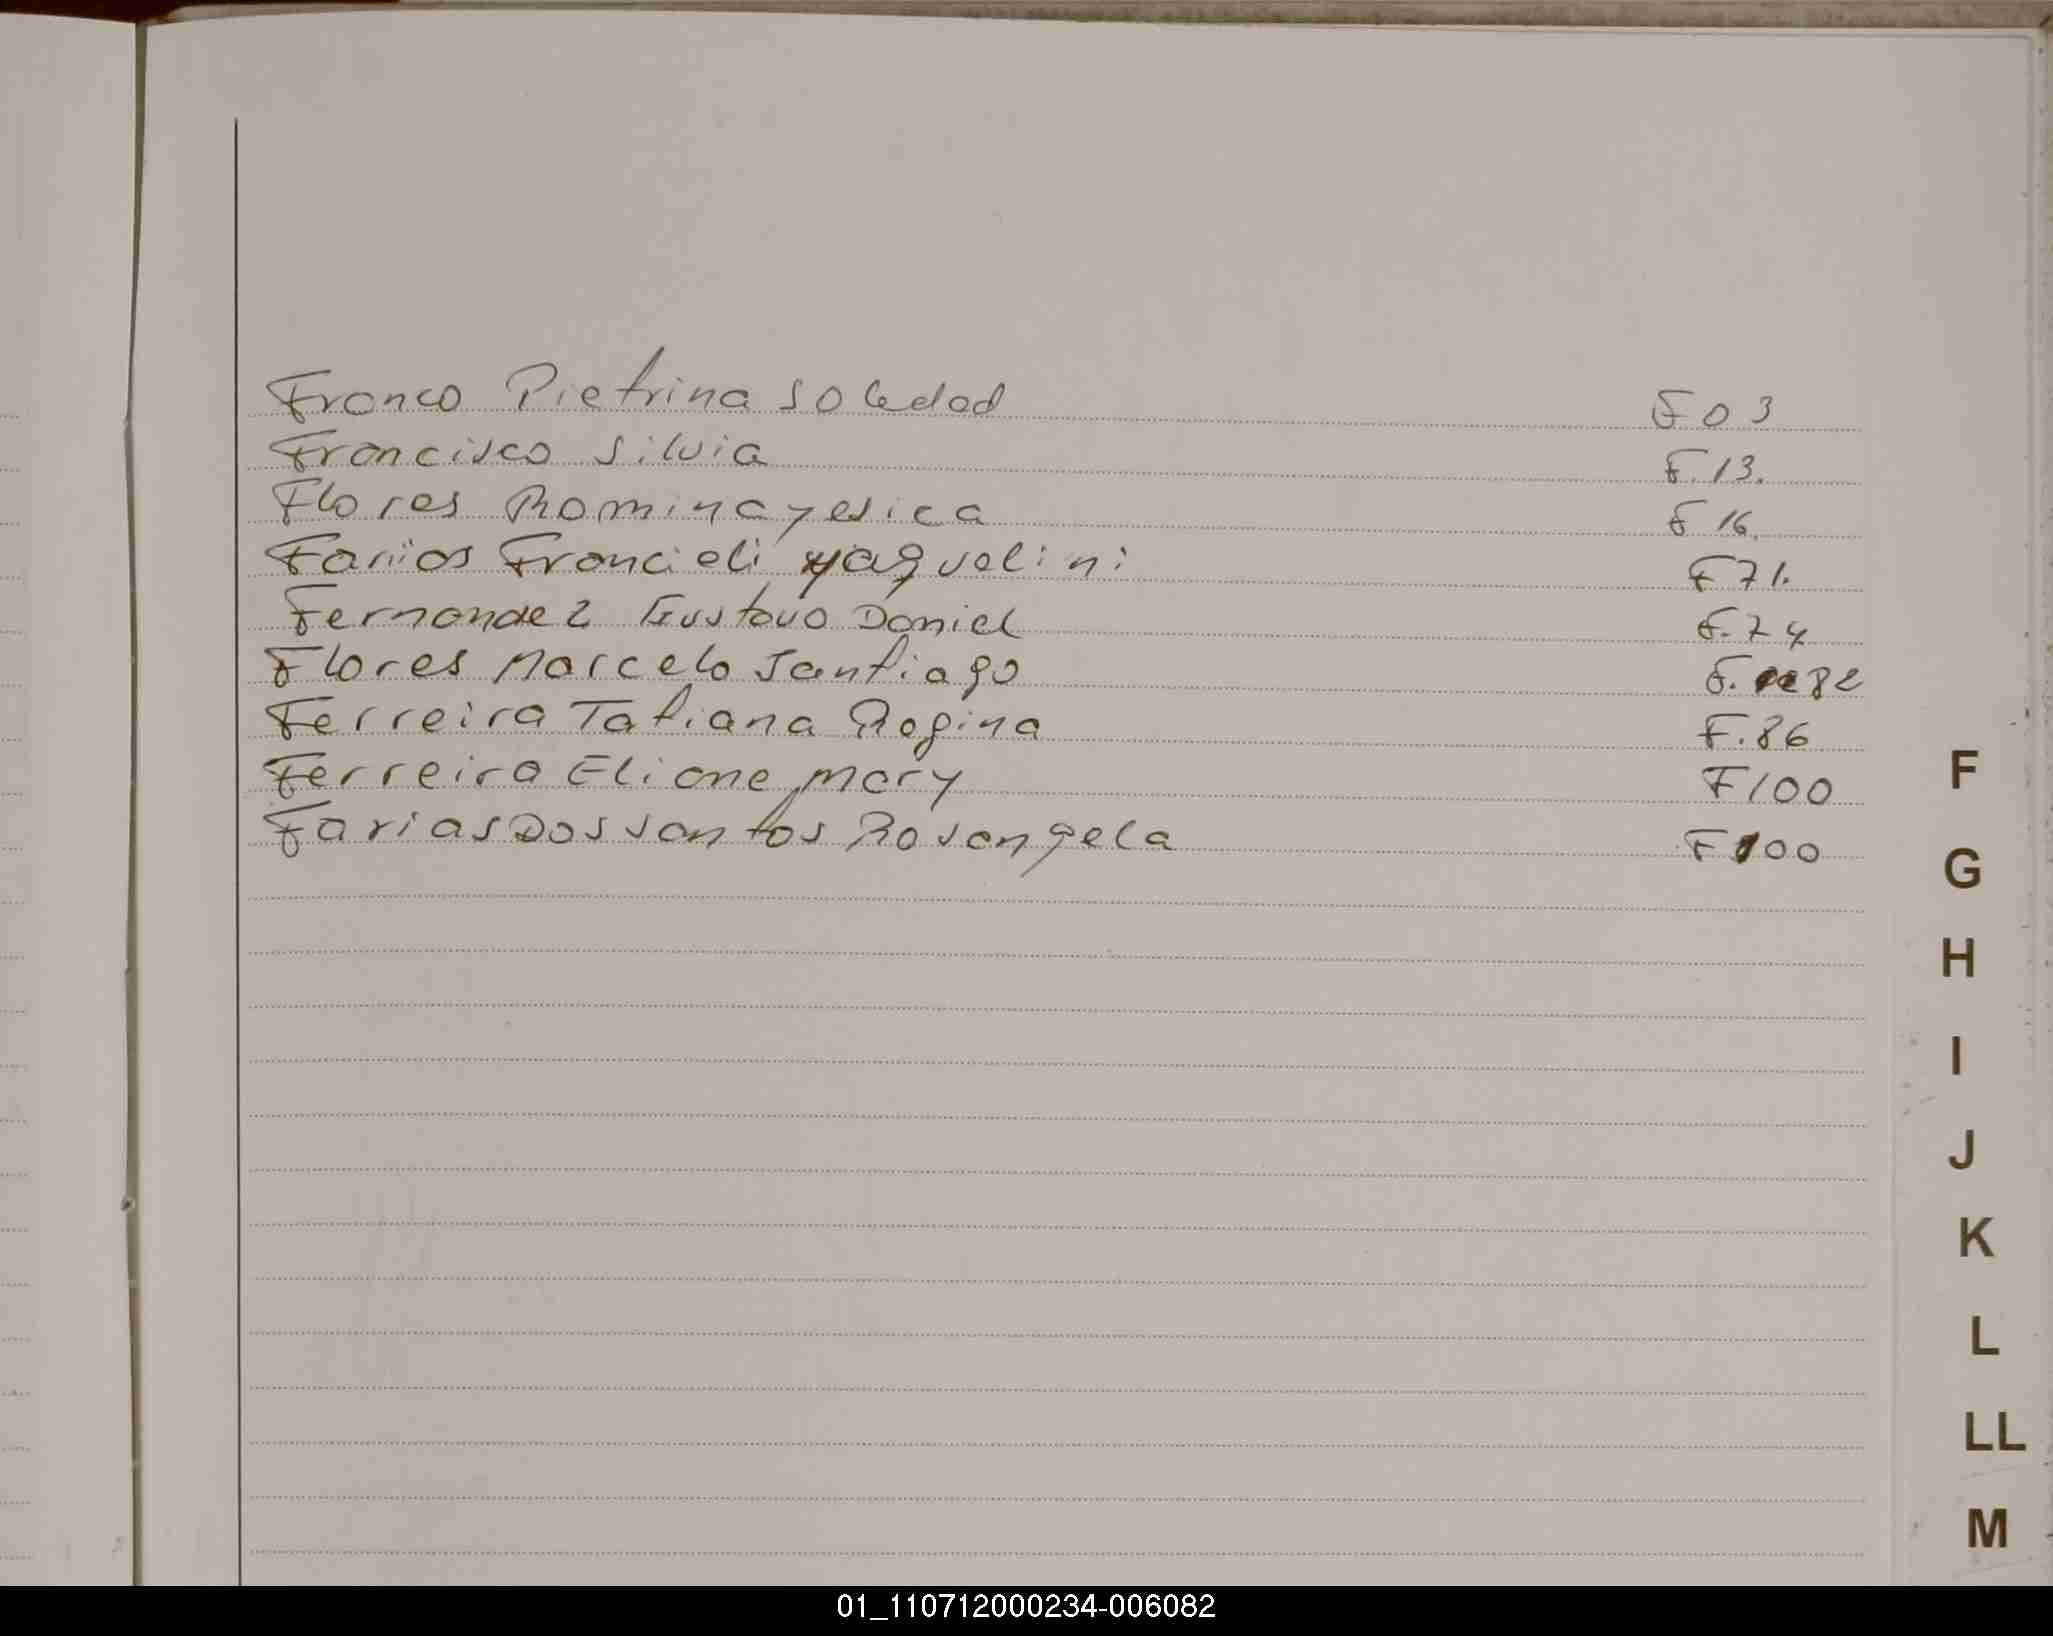 Franco Pietrina Soledad F 03
Francisco Silvia F.13.
Flores Romina yesica F 16.
Farias Francieli yaquelini F 71.
Fernandez Gustavo Daniel F.74
Flores Marcelo Santiago F. 82
Ferreira Tatiana Regina F.86
Ferreira Eliane Mary F100
Farias Dos Santos Rosangela F100
F
G
H
I
J
K
L
LL
M
01_110712000234-006082